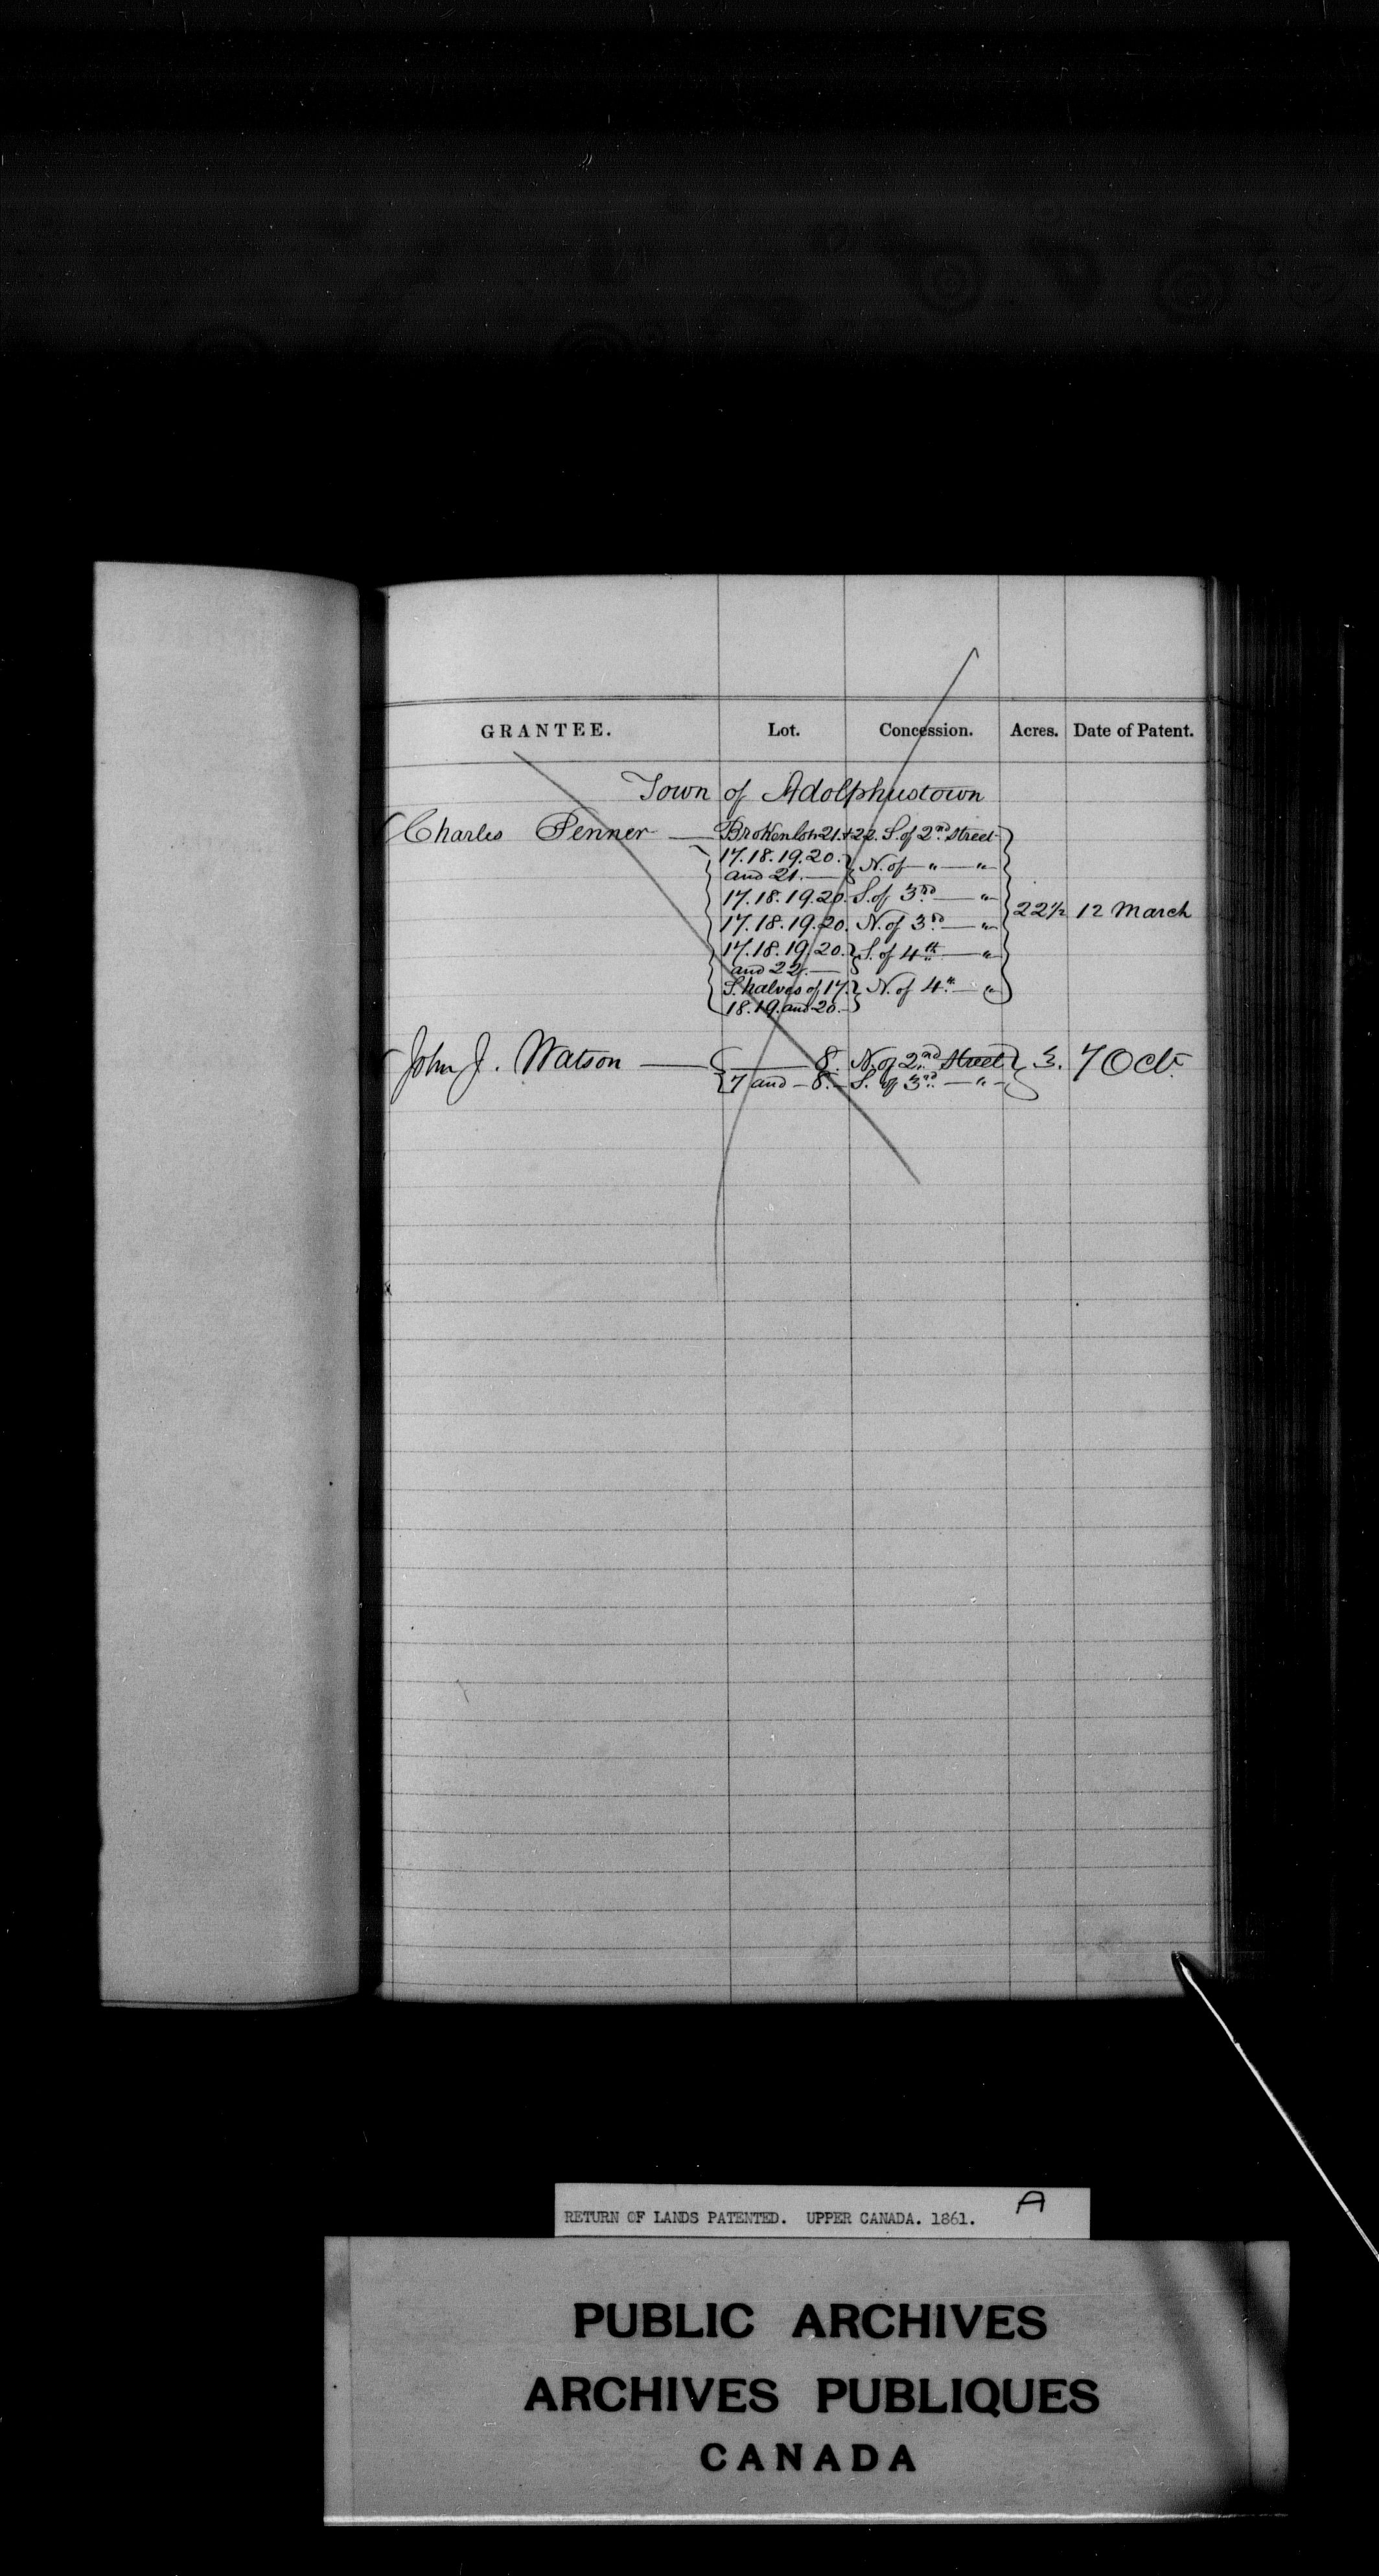 GRANTEE. Lot. Concession. Acres. Date of Patent.
Town of Adolphustown
Charles Penner — Broken lots 21 + 22. S. of 2nd Street
17. 18. 19. 20. N. of — " — "
and 21. —
17. 18. 19. 20. S. of 3rd — "
22½ 12 March
17. 18. 19. 20. N. of 3rd — "
17. 18. 19. 20. S. of 4th — "
and 22. —
S. halves of 17. N. of 4th — "
18. 19. and 20. —
John J. Watson — 8. N. of 2nd Street 3. 7 Oct.
7 and — 8. — S. of 3rd — " —
RETURN OF LANDS PATENTED. UPPER CANADA. 1861. A
PUBLIC ARCHIVES
ARCHIVES PUBLIQUES
CANADA